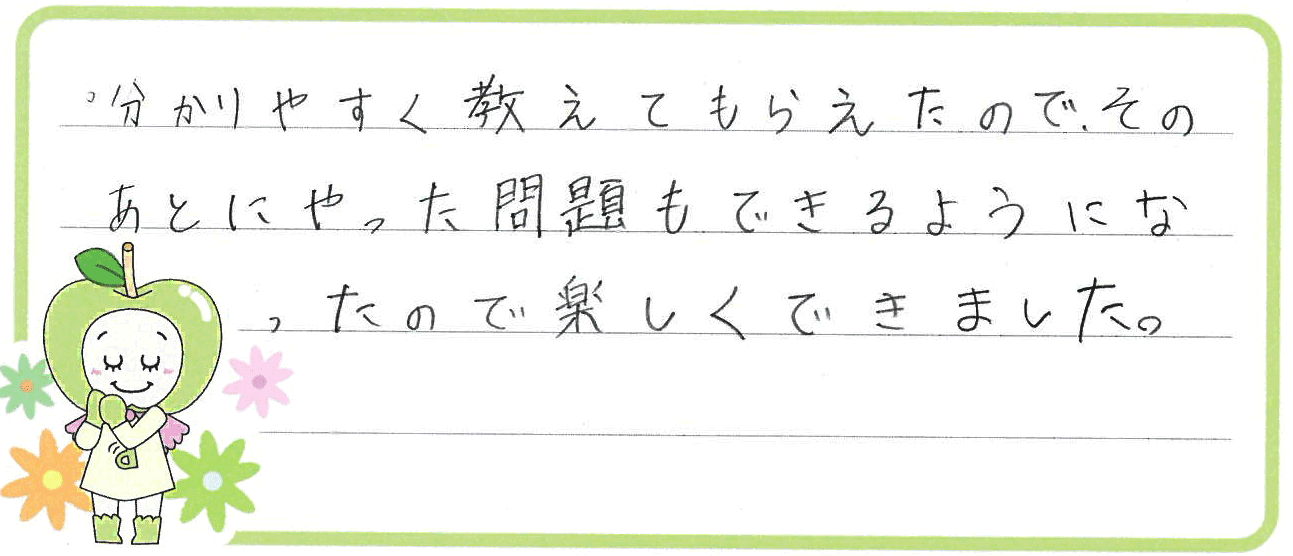 ・分かりやすく教えてもらえたので、その
あとにやった問題もできるようにな
ったので楽しくできました。